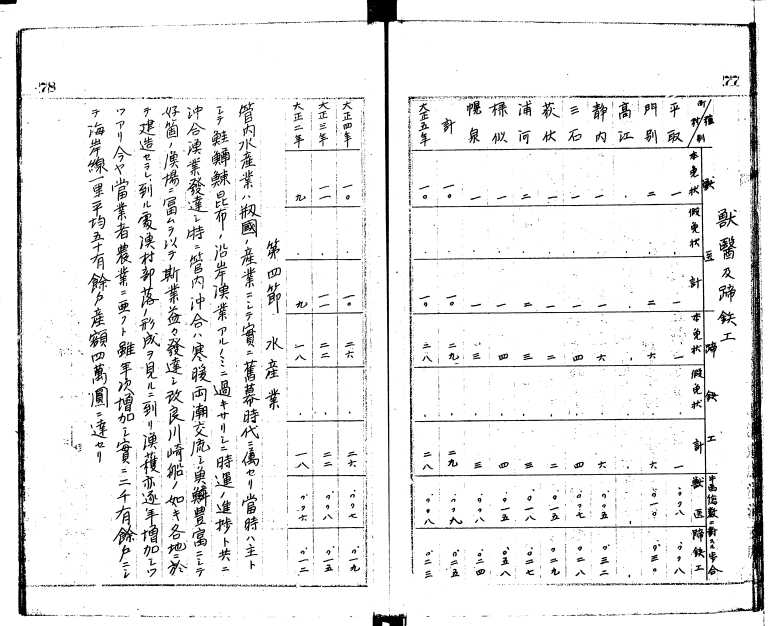 77
獸醫及蹄鉄工
種別
町村別
獸医
蹄鉄工
牛馬總數ニ對スル歩合
本免狀
假免狀
計
本免狀
假免狀
計
獸医
蹄鉄工
平取
一
・
一
一
・
一
門別
二
・
二
六
・
六
高江
靜内
一
・
一
六
・
六
三石
一
・
一
二
・
二
荻伏
一
・
一
四
・
四
浦河
二
・
二
三
・
三
様似
一
・
一
四
・
四
幌泉
一
・
一
三
・
三
計
一〇
・
一〇
二九
・
二九
大正五年
一〇
・
一〇
二八
・
二八
78
大正四年
一〇
・
一〇
二六
・
二六
大正三年
一一
・
一一
二二
・
二二
大正二年
九
・
九
一八
・
一八
第四節 水産業
管内水産業ハ殖國ノ産業ニシテ實ニ舊幕時代ニ傷セリ當時ハ主ト
シテ鮭鱒鰊昆布ノ沿岸漁業アルノミニ過キサリシニ時運ノ進捗ト共ニ
沖合漁業發達シ特ニ管内沖合ハ寒暖両潮交流シ魚鱗豊富ニシテ
好箇ノ漁場ニ富ムヲ以テ斯業益々發達シ改良川崎船ノ如キ各地ニ於
テ建造セラレ到ル處漁村部落ノ形成ヲ見ルニ到リ漁獲亦逐年増加シツ
ツアリ今ヤ當業者農業ニ亜クト雖年次増加シ實ニ二千有餘戸ニシ
テ海岸線一里平均五十有餘戸産額四萬圓ニ達セリ